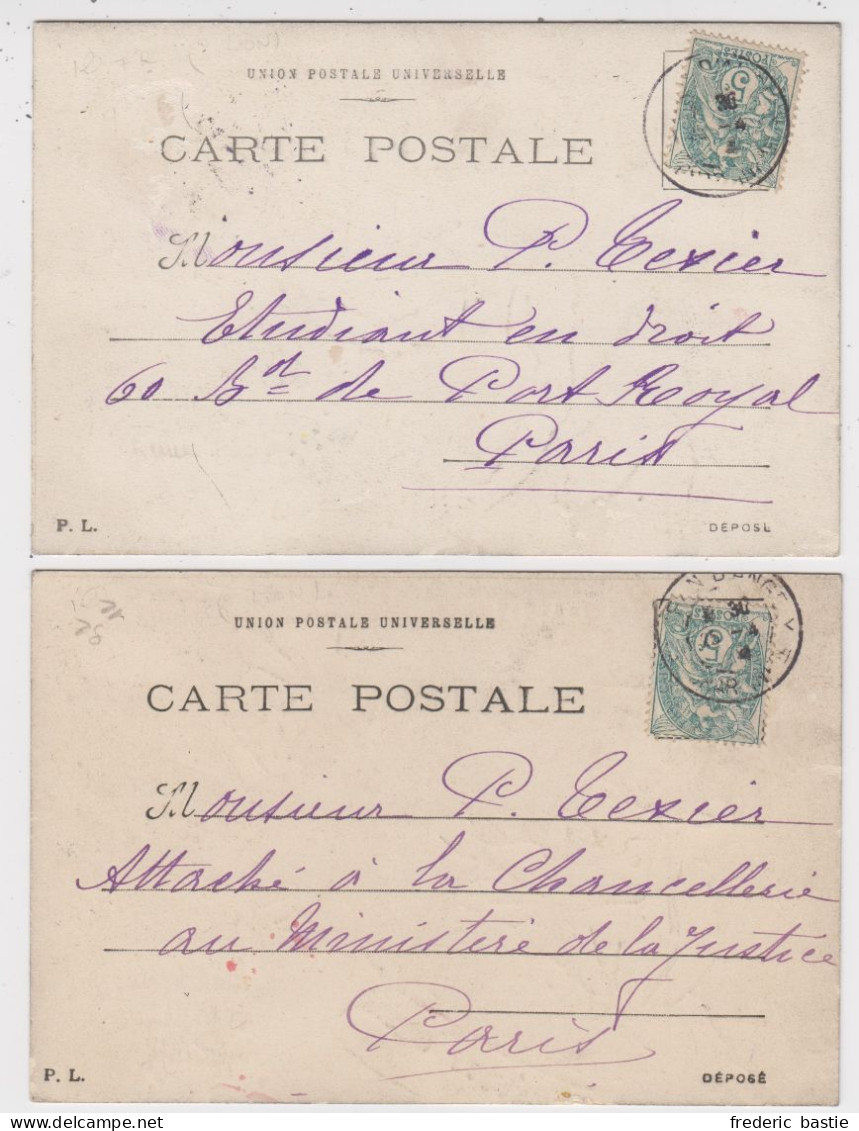 UNION POSTALE UNIVERSELLE
CARTE POSTALE
POSTES
5
Monsieur P. Texier
Etudiant en droit
60 Bd de Port Royal
Paris
P. L.
DÉPOSÉ
UNION POSTALE UNIVERSELLE
CARTE POSTALE
POSTES
5
30
Monsieur P. Texier
Attaché à la Chancellerie
au Ministère de la Justice
Paris
P. L.
DÉPOSÉ
frederic bastie